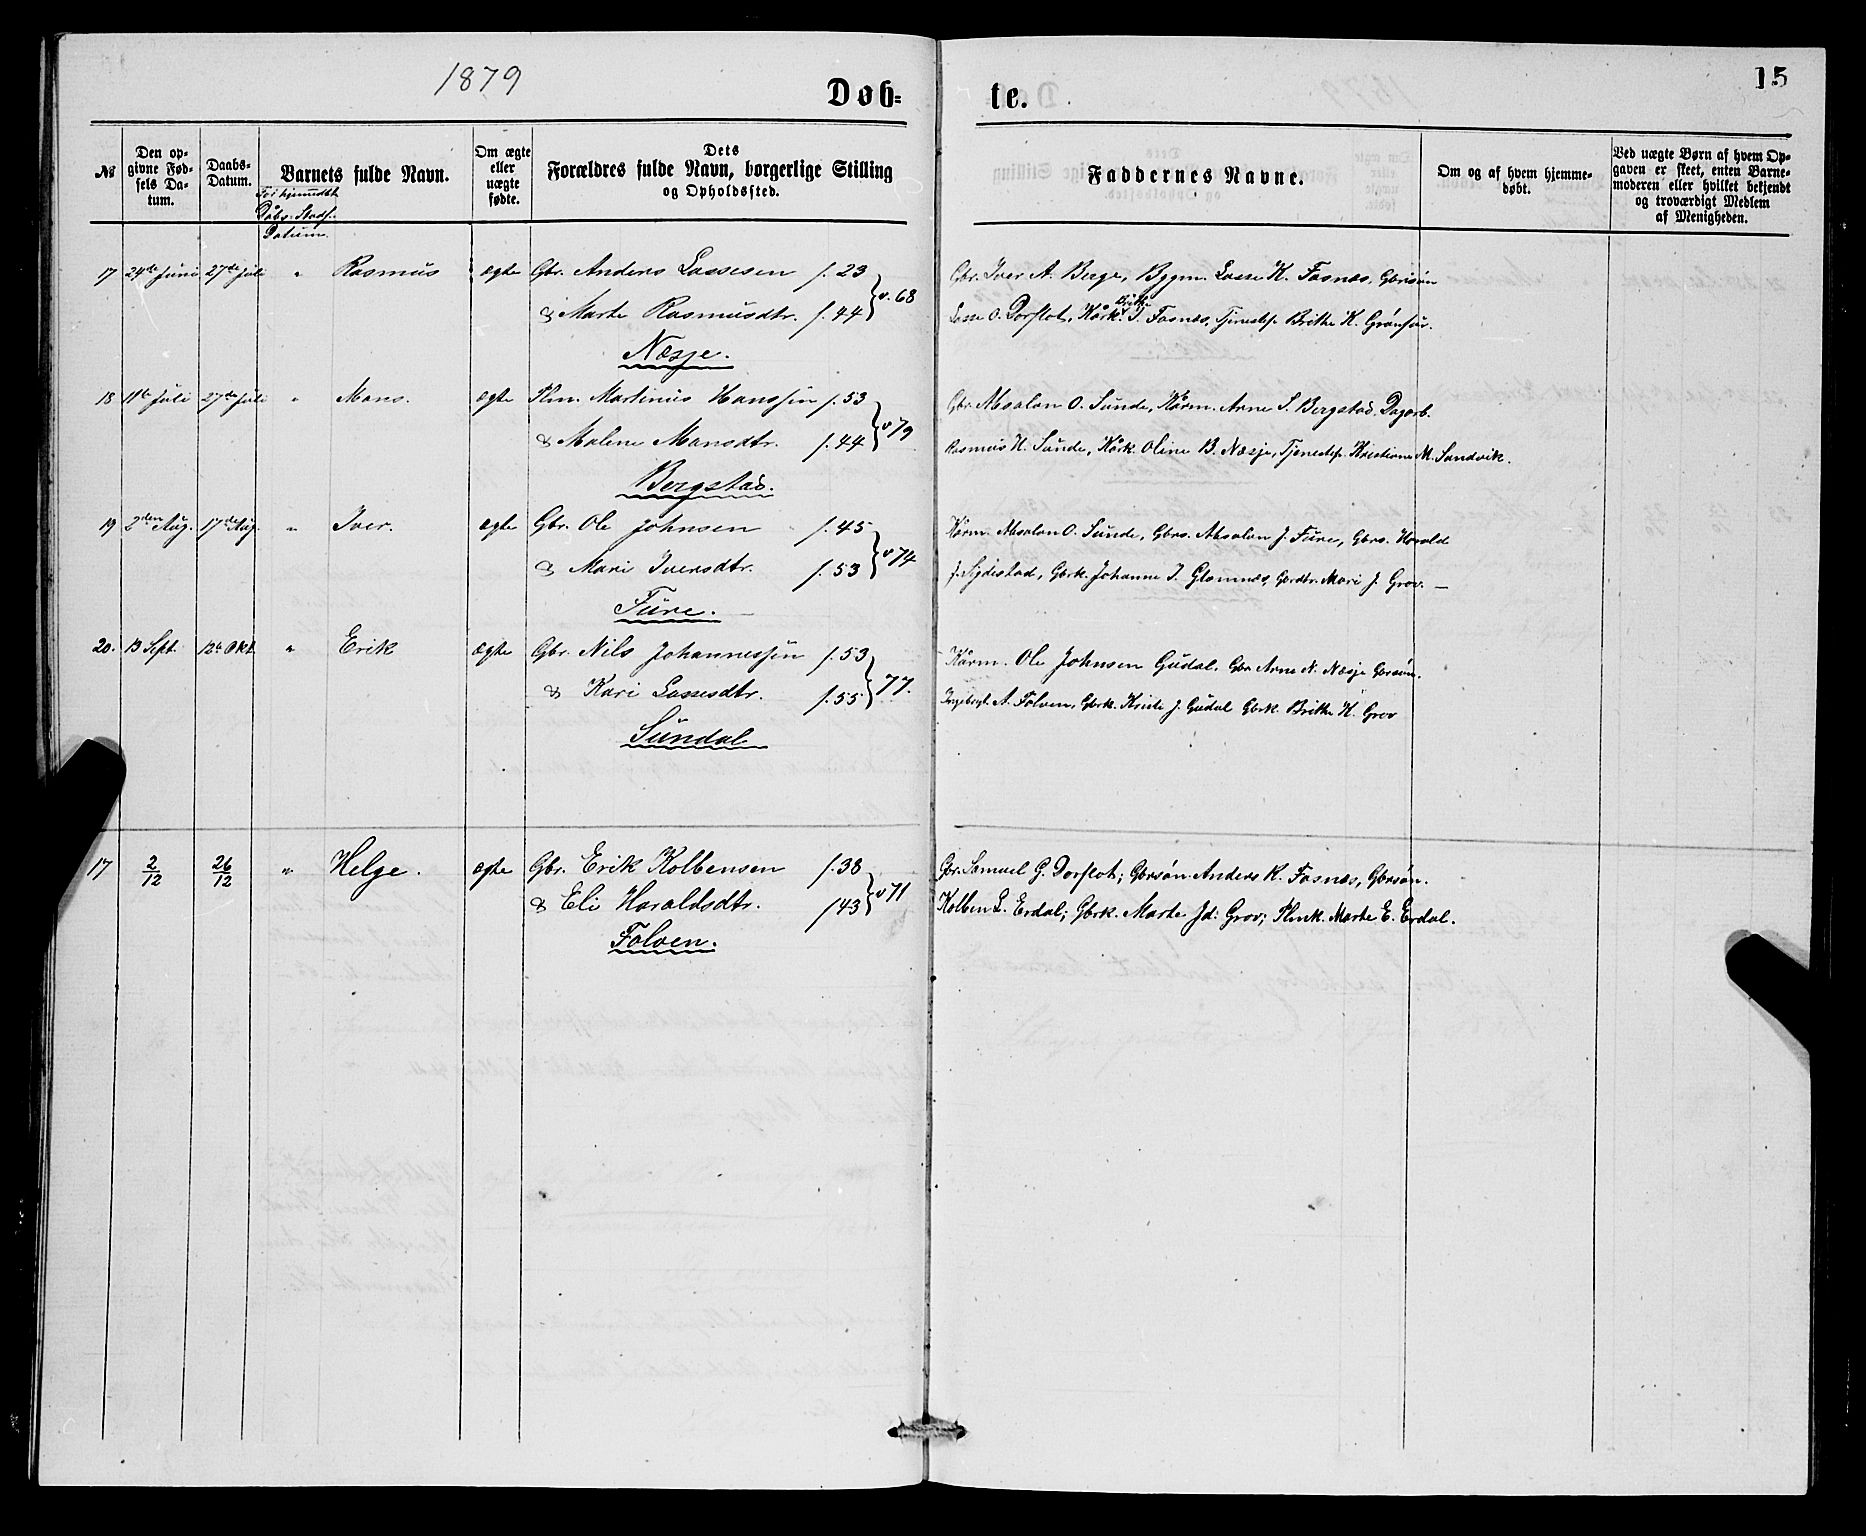 1879
Døb=
te.
15
№
Den op-
givne Fød-
sels Da-
tum.
Daabs-
Datum.
Barnets fulde Navn.
Dåbs-Stads-
Datum.
Om ægte
eller
uægte
fødte.
Dets
Forældres fulde Navn, borgerlige Stilling
og Opholdssted.
Faddernes Navne.
Om og af hvem hjemme-
døbt.
Ved uægte Børn af hvem Op-
gaven er skeet, enten Barne-
moderen eller hvilket bekjendt
og troværdigt Medlem
af Menigheden.
17 24de Juni 27de Juli " Rasmus ægte Gbr. Anders Lassesen f. 23
& Marte Rasmusdtr. f. 44 } v. 68
Næsje.
Gbr. Iver A. Berge, Bygm. Lasse K. Fosnæs, Gbrsøn
Lasse O. Dorflot, Kårk. Brithe I. Fosnæs, Tjenestep. Brithe K.
18 11te Juli 27de Juli " Mons. ægte Plm. Martinus Hanssen f. 53
& Malene Monsdtr. f. 44 } v 79
Bergstad.
Gbr. Absalon O. Sunde, Kårm. Arne S. Bergstad, Dagarb.
Rasmus H. Sunde, Kårk. Oline B. Næsje, Tjenestep. Kristiane M. Sandvik.
19 2den Aug. 17de Aug. " Iver. ægte Gbr. Ole Johnsen f. 45
& Mari Iversdtr. f. 53 } v 74
Fure.
Kårm. Absalon O. Sunde, Gbrs. Absalon J. Fure, Gbrs. Harald
J. Sydestad, Gbrk. Johanne I. Glomnæs, Gbrdtr. Mari J. Grov. —
20. 13 Sept. 12te Okt. " Erik ægte Gbr. Nils Johannessen f. 53
& Kari Lassesdtr. f. 55 } 77.
Sundal
Kårm. Ole Johnsen Gudal, Gbr Arne N. Næsje Gbrsøn.
Ingebrgt. A. Folven, Gbrk. Kriste J. Gudal Gbrk. Brithe K. Grov
17 2/12 26/12 " Helge. ægte Gbr. Erik Kolbensen f. 38
& Eli Haraldsdtr. f 43 } v 71
Folven.
Gbr. Samuel G. Dorflot; Gbrsøn Anders K. Fosnæs, Gbrsøn.
Kolben L. Erdal; Gbrk. Marte Jd: Grov; Plmk. Marte E. Erdal.